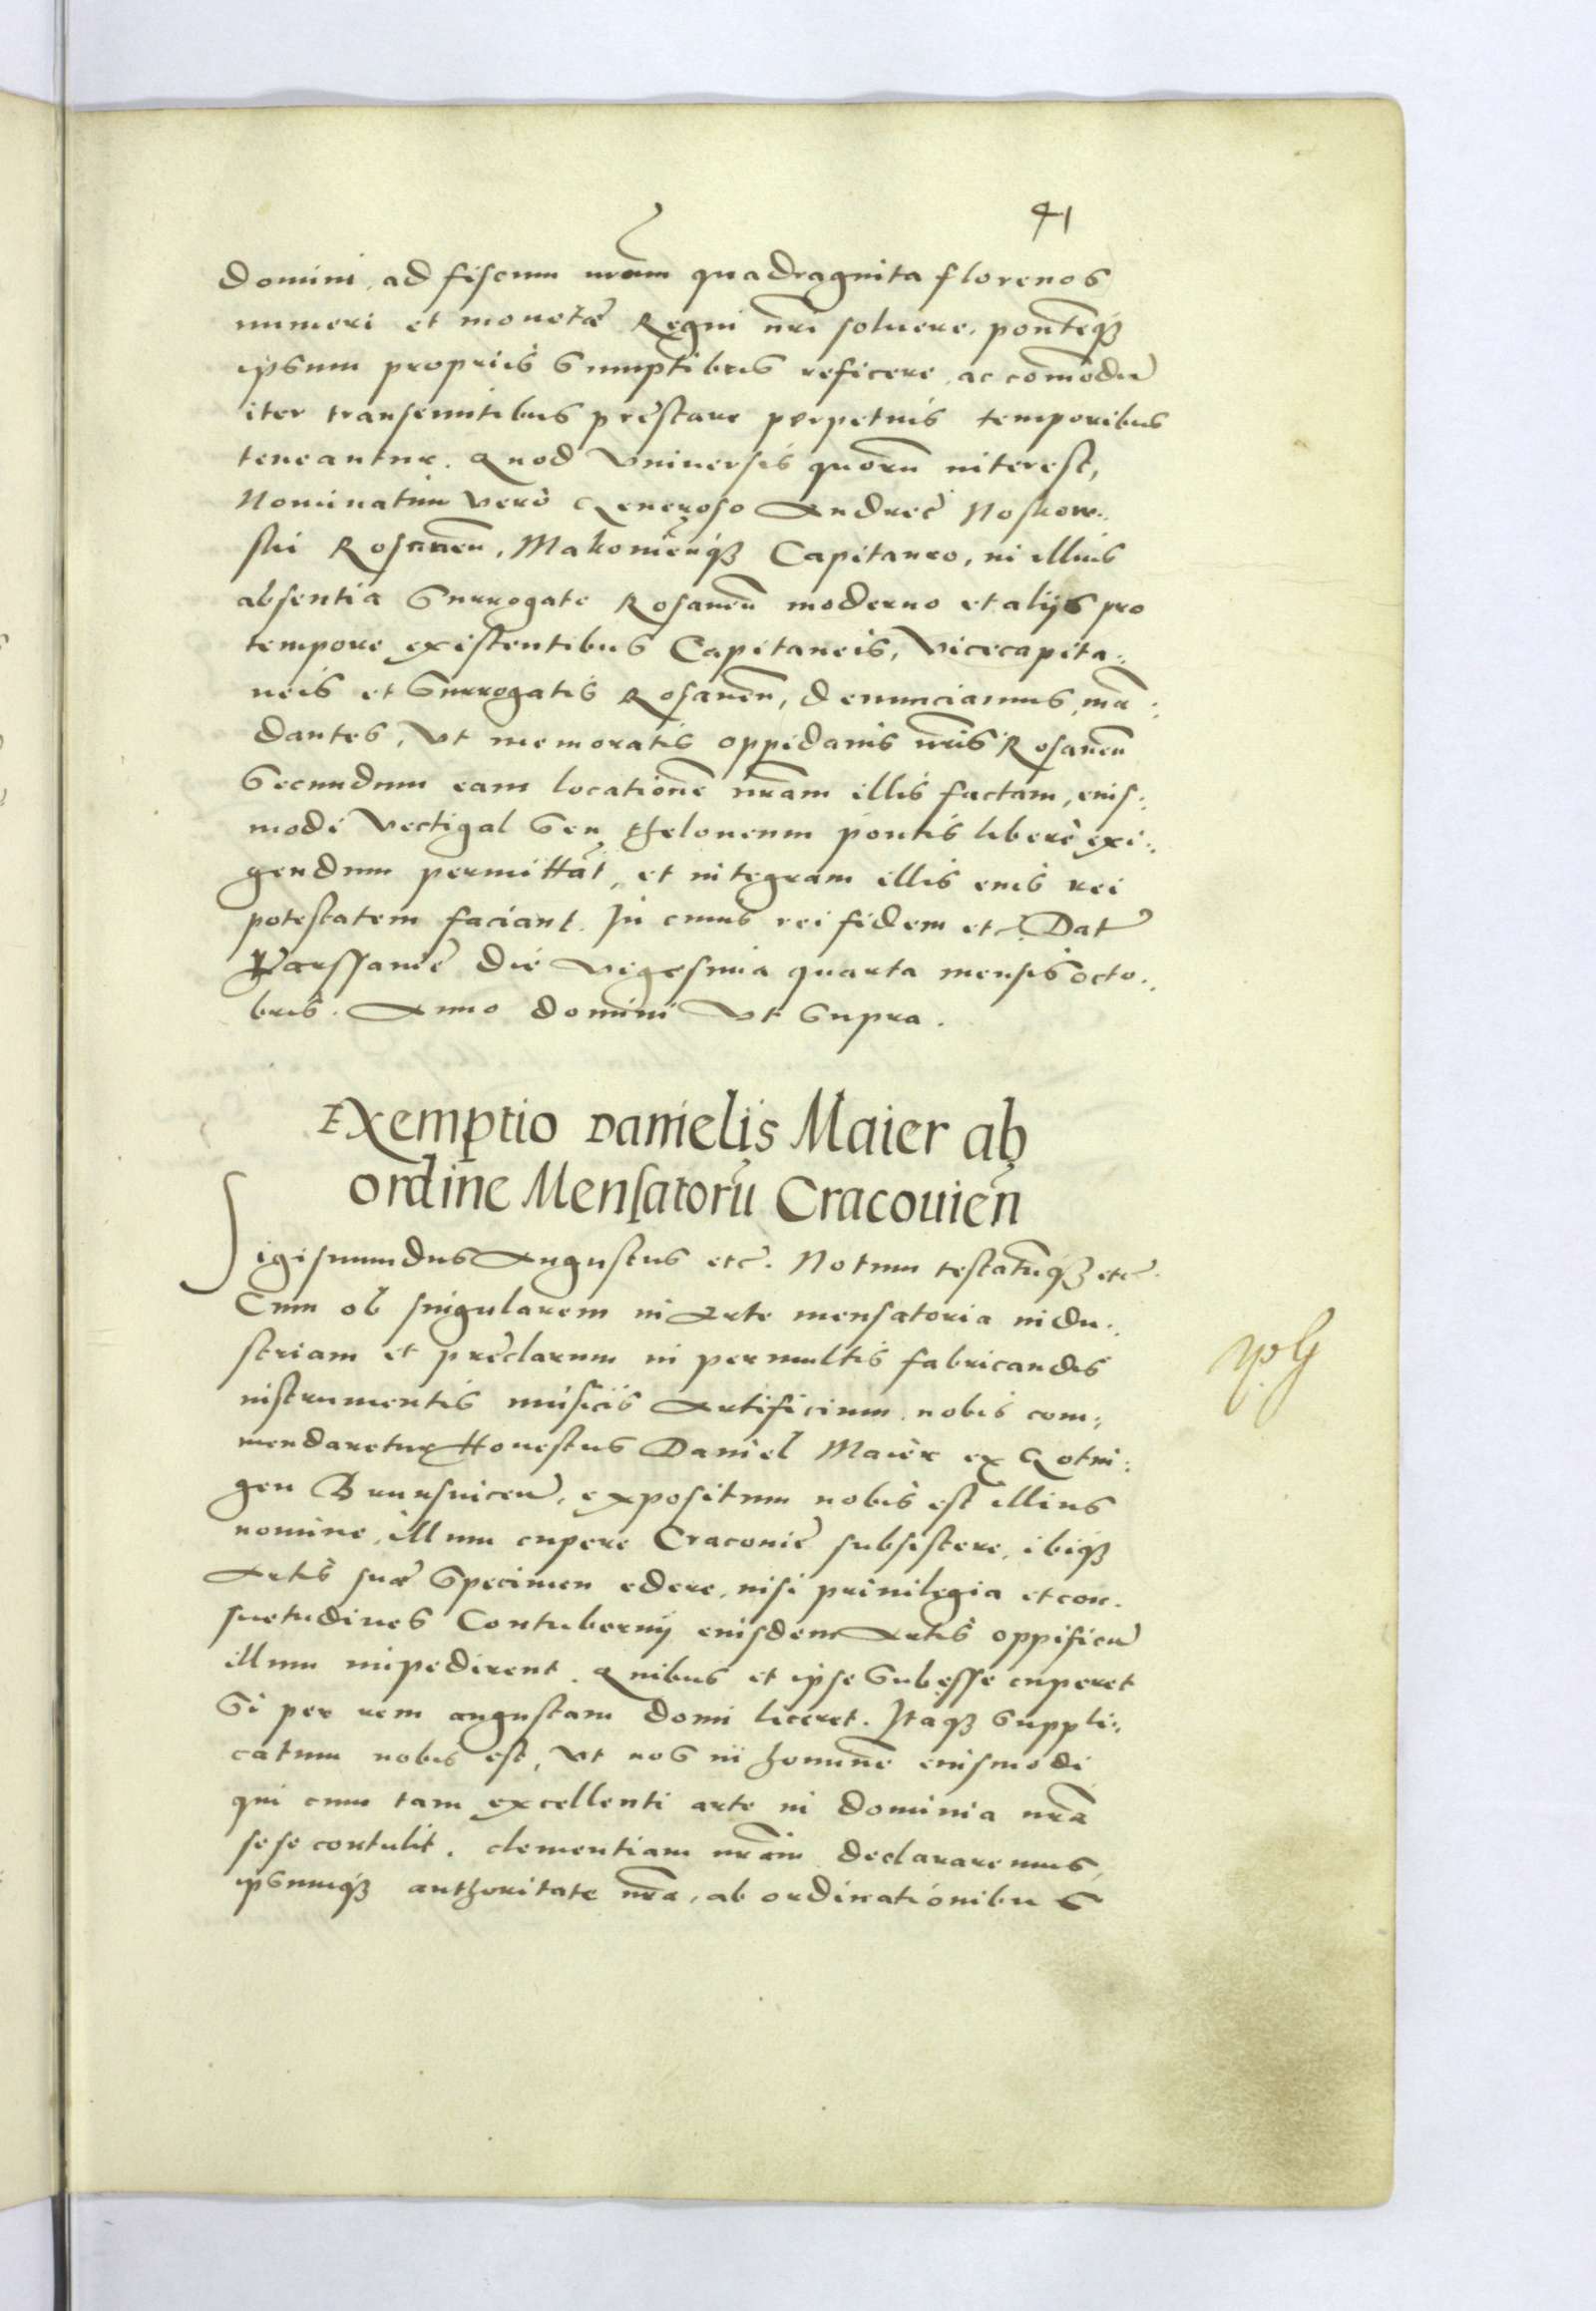 41
domini, ad fiscum nrum quadraginta florenos
numeri et monetæ Regni nri soluere, pontēqȝ
ipsum proprijs sumptibus reficere, ac comodū
iter transeuntibus prestare perpetuis temporibus
teneantur. Quod Vniuersis quorū interest,
Nominatim vero Generoso Andreę Noskow:
ski Rosanen, Makouieńqȝ Capitaneo, in illius
absentia Surrogato Rosaneñ moderno et alijs pro
tempore existentibus Capitaneis, Vicecapita:
neis et Surrogatis Rosaneñ, denunciamus, mā:
dantes, Vt memoratis oppidanis nris Rosaneñ
Secundum eam locationē nram illis factam, eius:
modi Vectigal Seu theloneum pontis liberè exi:
gendum permittāt, et integram illis eius rei
potestatem faciant. In cuius rei fidem etc. Dat
Varssauię die vigesima quarta mensis octo:
bris. Anno domini Vt Supra.
Exemptio Danielis Maier ab
ordine Mensatorū Cracouień
Sigismundus Augustus etc. Notum testatūqȝ etc.
Cum ob singularem in Arte mensatoria indu:
striam et pręclarum in permultis fabricandis
instrumentis musicis Artificium nobis com:
mendaretur Honestus Daniel Maier ex Gotin:
gen Brunsuiceñ, expositum nobis est illius
nomine, illum cupere Cracouię subsistere, ibiqȝ
Artis suæ Specimen edere, nisi priuilegia et con.
suetudines Contubernij eiusdem Artis oppificū
illum impedirent. Quibus et ipse Subesse cuperet
Si per rem angustam domi liceret. Itaqȝ Suppli:
catum nobis est, Vt nos in hominē eiusmodi
qui cum tam excellenti arte in dominia nrā
sese contulit, clementiam nram declararemus,
ipsumqȝ authoritate nra, ab ordinationibus